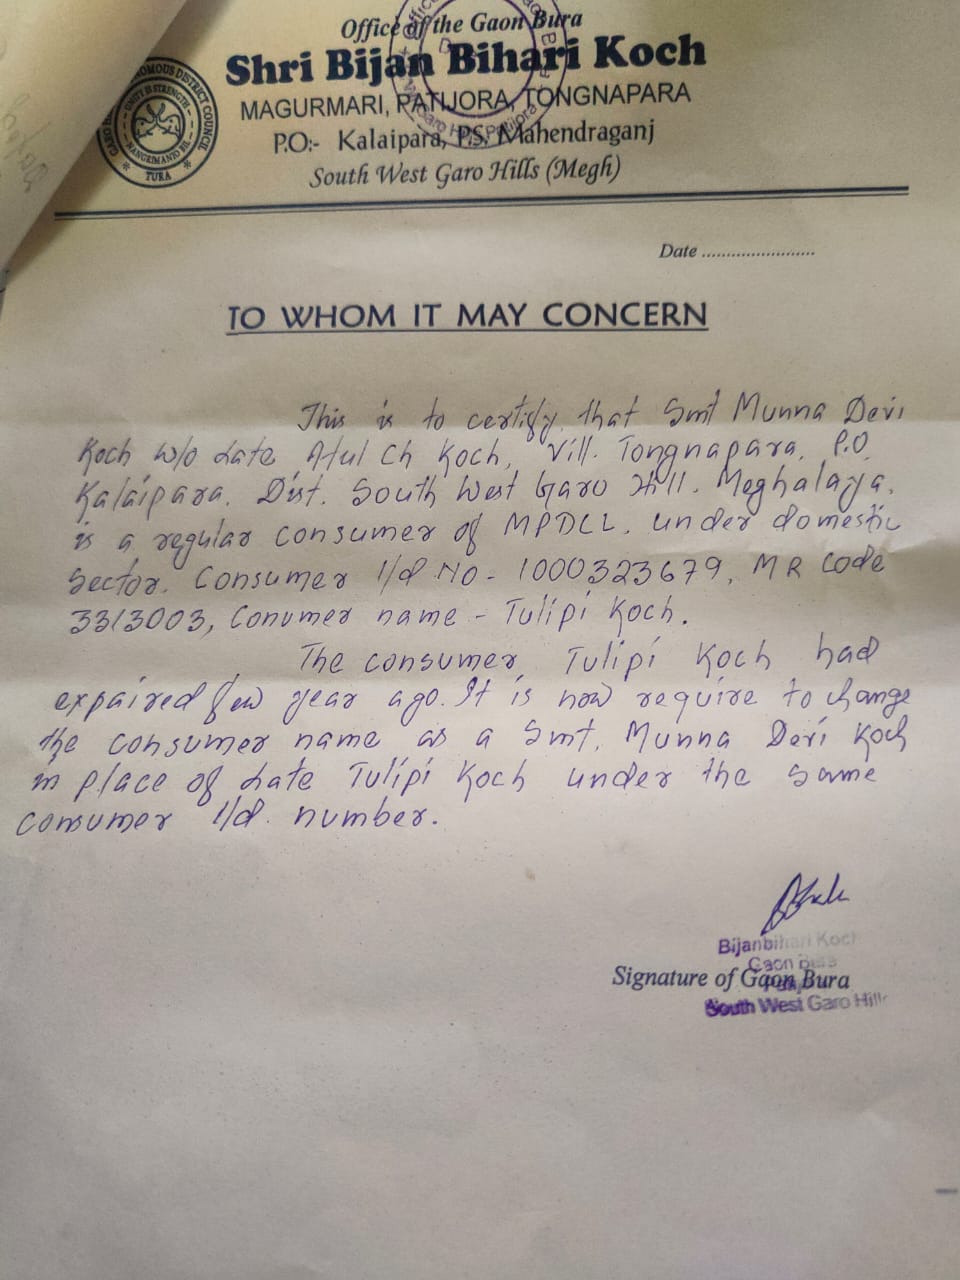 Office of the Gaon Bura
Shri Bijan Bihari Koch
MAGURMARI, PATIJORA, TONGNAPARA
P.O:- Kalaipara, P.S. Mahendraganj
South West Garo Hills (Megh)
Date .......................
TO WHOM IT MAY CONCERN
This is to certify that Smt Munna Devi
Koch w/o Late Atul Ch Koch, Vill. Tongnapara, P.O.
Kalaipara. Dist. South West Garo Hill. Meghalaya.
is a regular consumer of MPDCL. under domestic
Sector. Consumer I/d No- 1000323679, MR Code
3313003, Conumer name - Tulipi Koch.
The consumer Tulipi Koch had
expaired few year ago. It is now require to change
the consumer name as a Smt. Munna Devi Koch
in place of Late Tulipi Koch under the same
consumer I/d. number.
Bijanbihari Koch
Gaon Bura
Signature of Gaon Bura
South West Garo Hills
TOMOUS DISTRICT COUNCIL
UNITY IS STRENGTH
TURA
Garo Hills Patijora